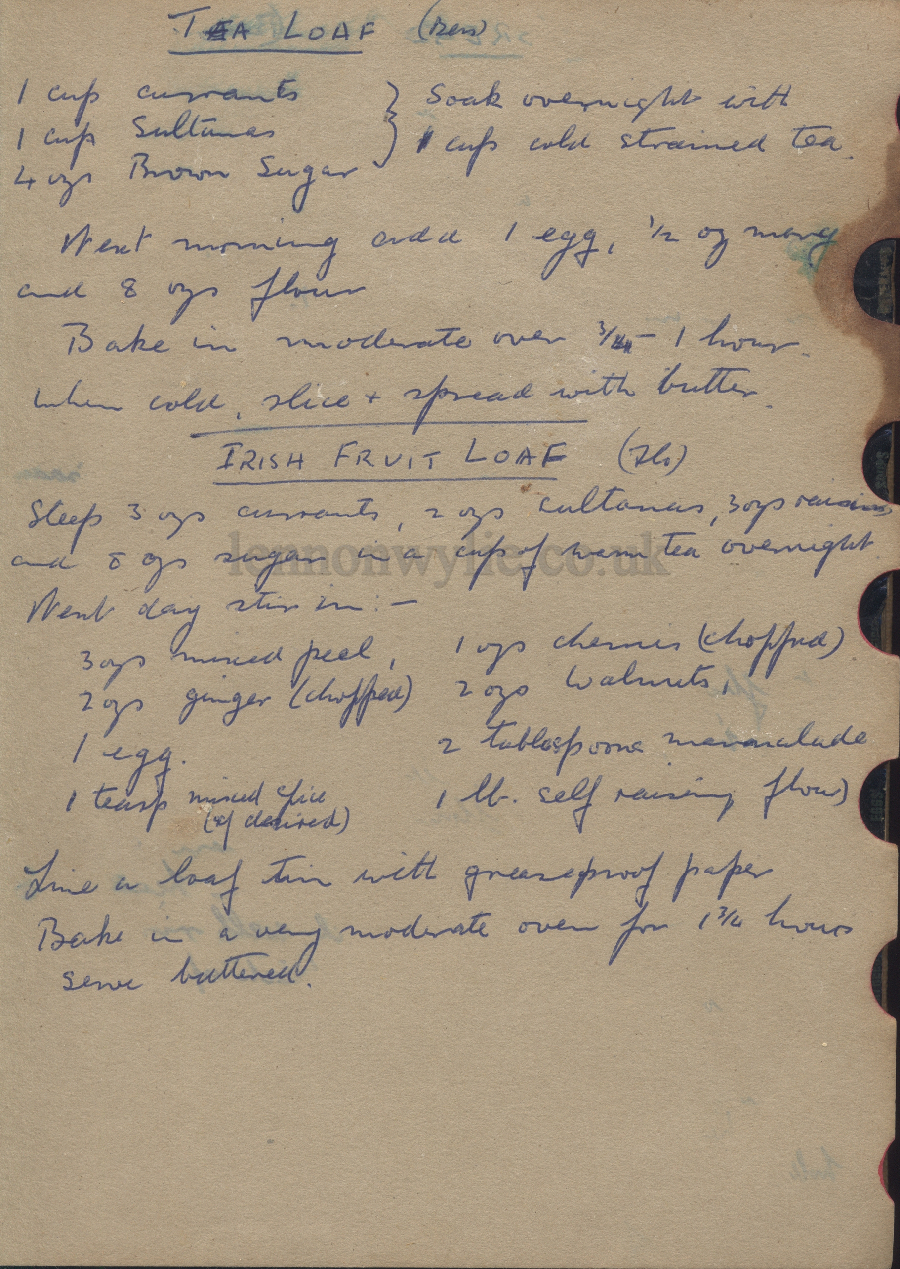 TEA LOAF
1 cup currants
1 cup Sultanas
4 ozs Brown Sugar
} Soak overnight with
1 cup cold strained tea.
Next morning add 1 egg, 1/2 oz marg
and 8 ozs flour
Bake in moderate oven 3/4 - 1 hour.
When cold, slice + spread with butter.
IRISH FRUIT LOAF (Flo)
Steep 3 ozs currants, 2 ozs sultanas, 3ozs raisins
and 8 ozs sugar in a cup of warm tea overnight
lennonwylie.co.uk
Next day stir in :-
3ozs mixed peel, 1 ozs cherries (chopped)
2 ozs ginger (chopped) 2 ozs Walnuts,
1 egg. 2 tablespoons marmalade
1 teasp mixed spice 1 lb. self raising flour)
(if desired)
Line a loaf tin with greaseproof paper
Bake in a very moderate oven for 1 3/4 hours
serve buttered.